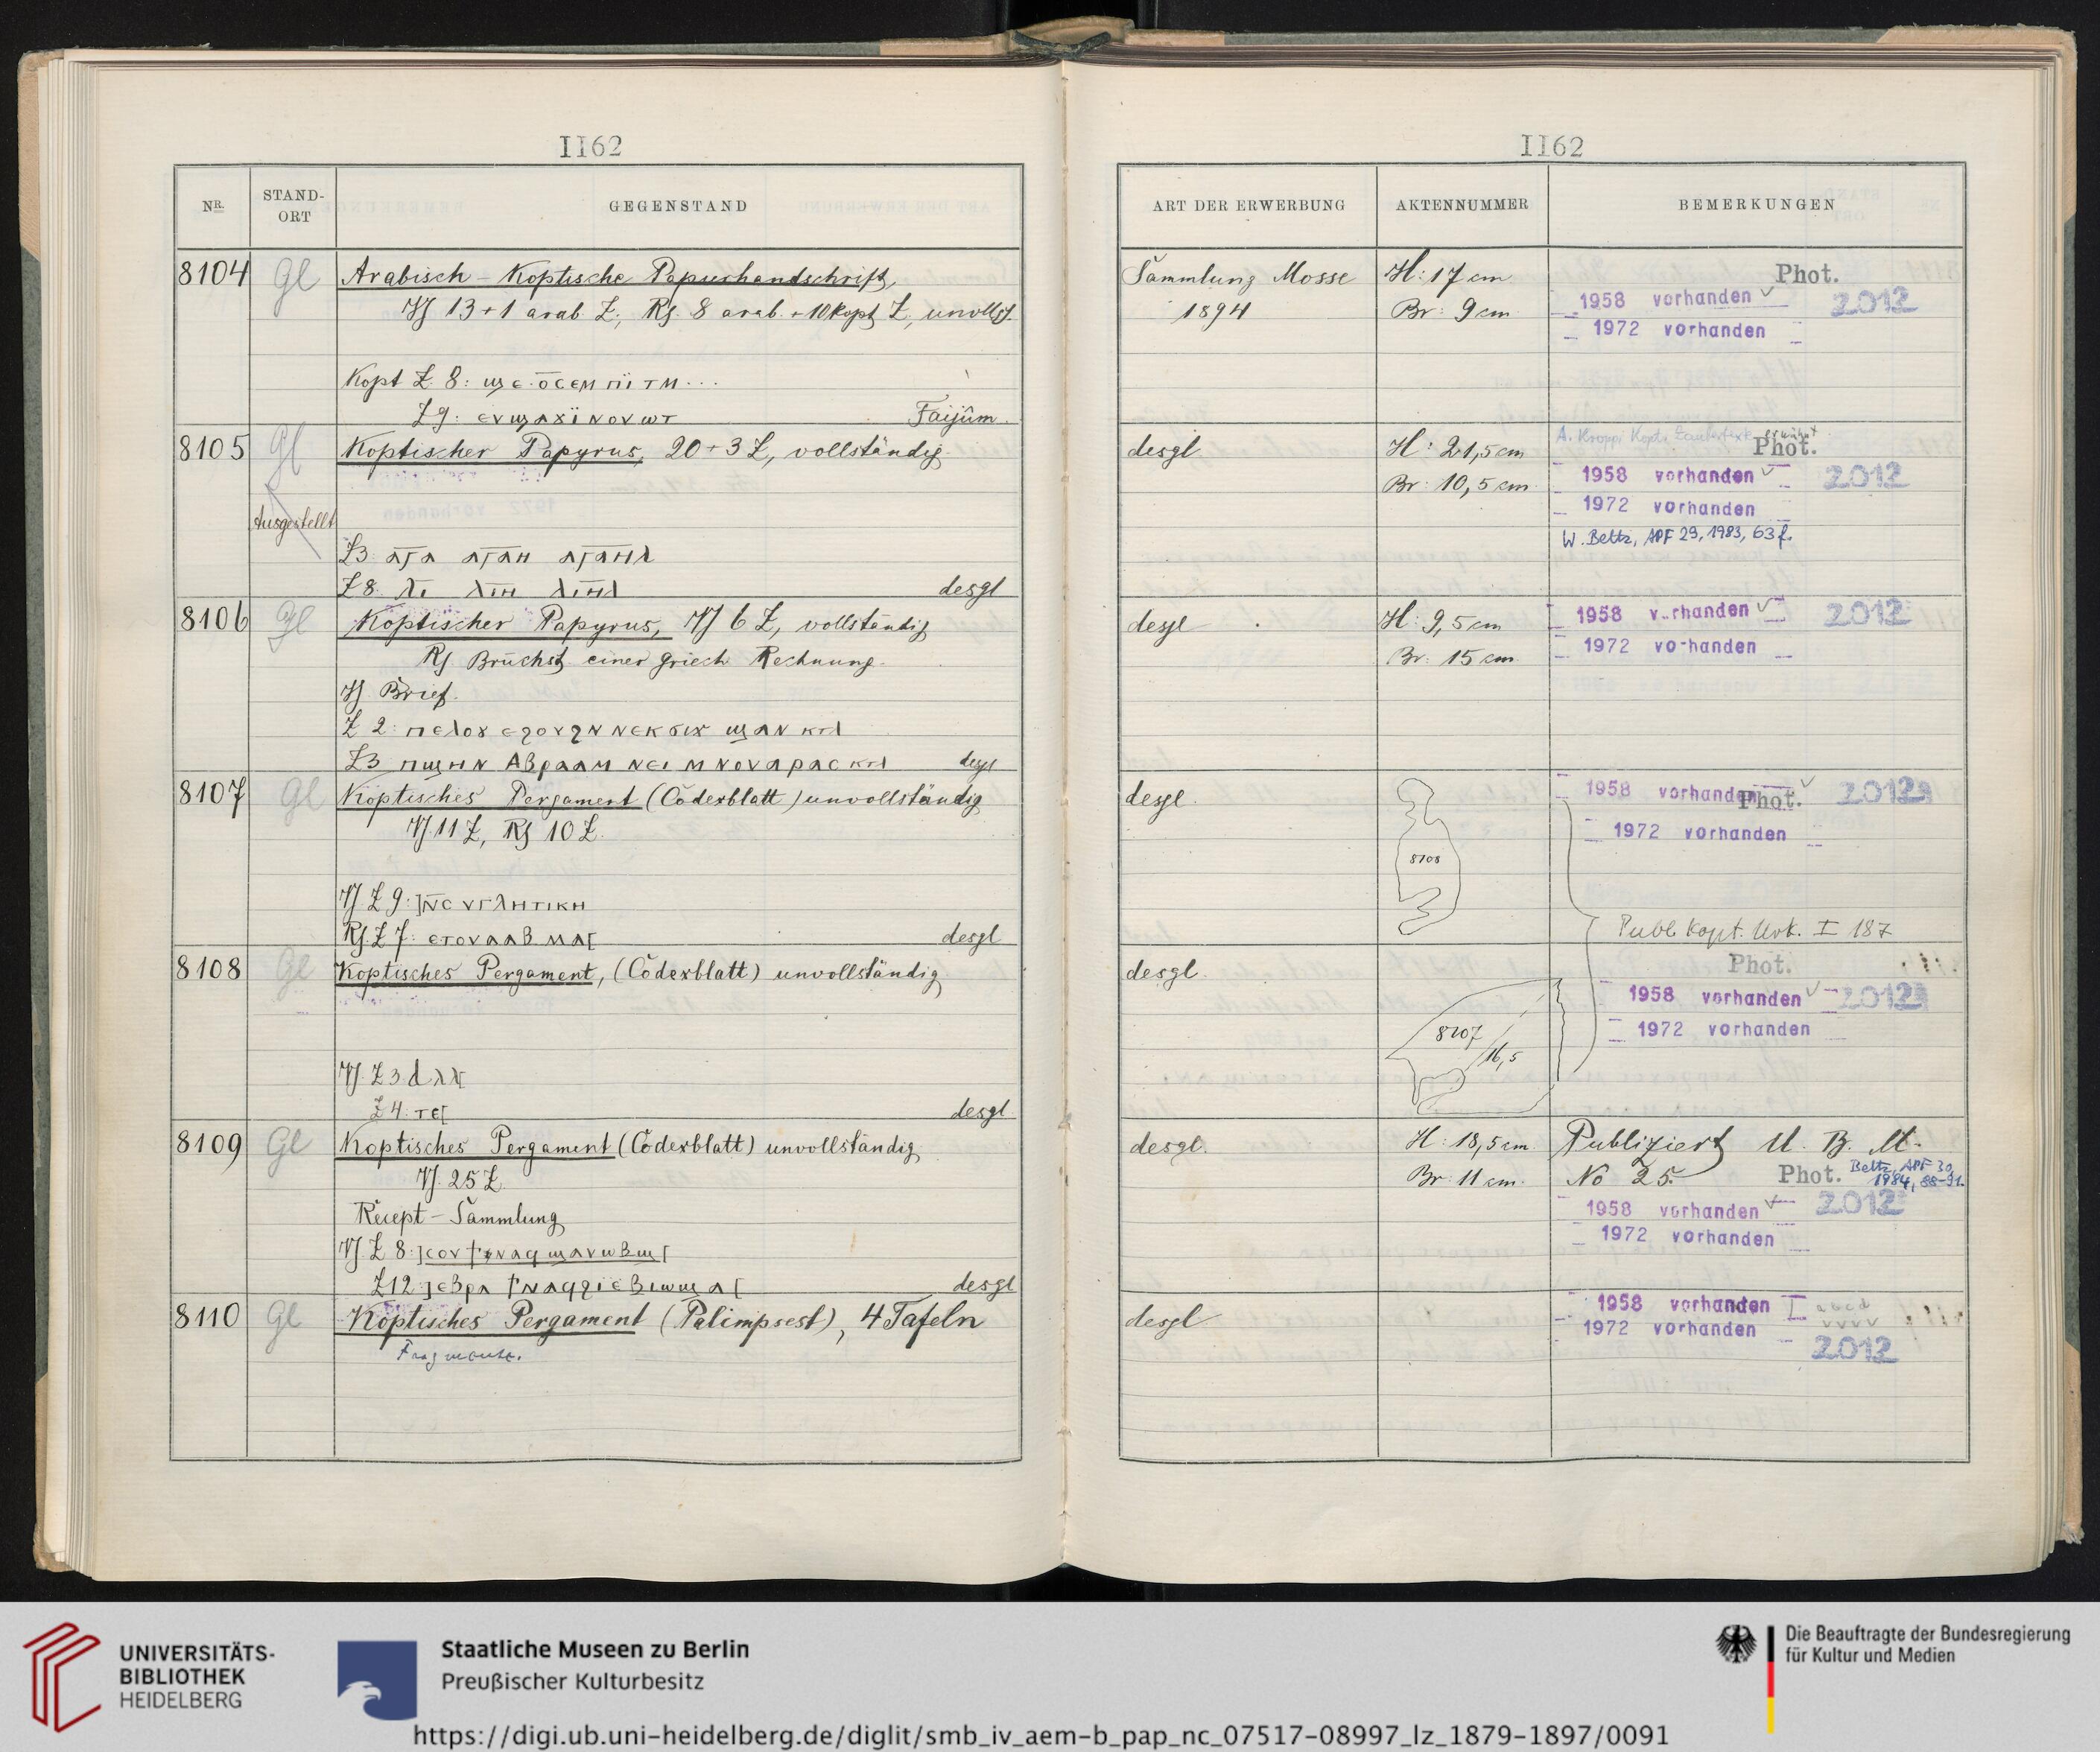 1162
NR.
STAND-
ORT
GEGENSTAND
8104 Gl Arabisch-Koptische Papyrushandschrift,
Vs 13+1 arab. Z., Rs. 8 arab. + 10 kopt Z, unvollst.
Kopt Z. 8: ϣⲉ
Z 9: ⲉⲩϣⲁϫⲓ ⲛⲟⲩⲱⲧ Faijûm.
8105 Gl Koptischer Papyrus, 20+3 Z, vollständig.
Ausgestellt
Z3: ⲁⲅⲁ ⲁⲅⲁⲏ ⲁⲅⲁⲏⲗ
Z 8: ⲗⲓ ⲗⲓⲏ ⲗⲓⲏⲗ desgl
8106 Gl Koptischer Papyrus, Vs 6 Z, vollständig
Rs Bruchst. einer griech Rechnung.
Vs. Brief.
Z 2: ⲉϩⲟⲩⲛ
Z3 ⲡϣⲏⲛ ⲁⲃⲣⲁⲁⲙ desgl
8107 Gl Koptisches Pergament (Codexblatt) unvollständig
Vs. 11 Z, Rs 10 Z.
Vs Z 9: ]ⲛⲥⲩⲅⲗⲏⲧⲓⲕⲏ
Rs. Z 7: ⲉⲧⲟⲩⲁⲁⲃ ⲙⲁ[ desgl
8108 Gl Koptisches Pergament, (Codexblatt) unvollständig
Vs. Z 3
Z 4: ⲧⲉ[ desgl
8109 Gl Koptisches Pergament (Codexblatt) unvollständig
Vs. 25 Z
Recept-Sammlung
Vs Z 8:
Z12: desgl
8110 Gl Koptisches Pergament (Palimpsest), 4 Tafeln
Fragmente.
1162
ART DER ERWERBUNG
AKTENNUMMER
BEMERKUNGEN
Sammlung Mosse H: 17 cm Phot.
1894 Br: 9 cm 1958 vorhanden 2012
1972 vorhanden
A. Kropp, Kopt. Zaubertexte erwähnt
desgl H: 21,5 cm Phot.
Br: 10,5 cm 1958 vorhanden 2012
1972 vorhanden
W. Beltz, APF 29, 1983, 63 f.
desgl H: 9,5 cm 1958 v.rhanden 2012
Br: 15 cm 1972 vo-handen
desgl. 1958 vorhanden Phot. 2012
1972 vorhanden
8108
Publ. Kopt. Urk. I 187
desgl. Phot.
1958 vorhanden 2012
8107 1972 vorhanden
16,5
desgl. H: 18,5 cm Publiziert U. B. M.
Br: 11 cm. No 25. Phot. Beltz, APF 30,
1984, 88-91.
1958 vorhanden 2012
1972 vorhanden
desgl 1958 vorhanden a b c d
1972 vorhanden
2012
UNIVERSITÄTS-
BIBLIOTHEK
HEIDELBERG
Staatliche Museen zu Berlin
Preußischer Kulturbesitz
Die Beauftragte der Bundesregierung
für Kultur und Medien
https://digi.ub.uni-heidelberg.de/diglit/smb_iv_aem-b_pap_nc_07517-08997_lz_1879-1897/0091